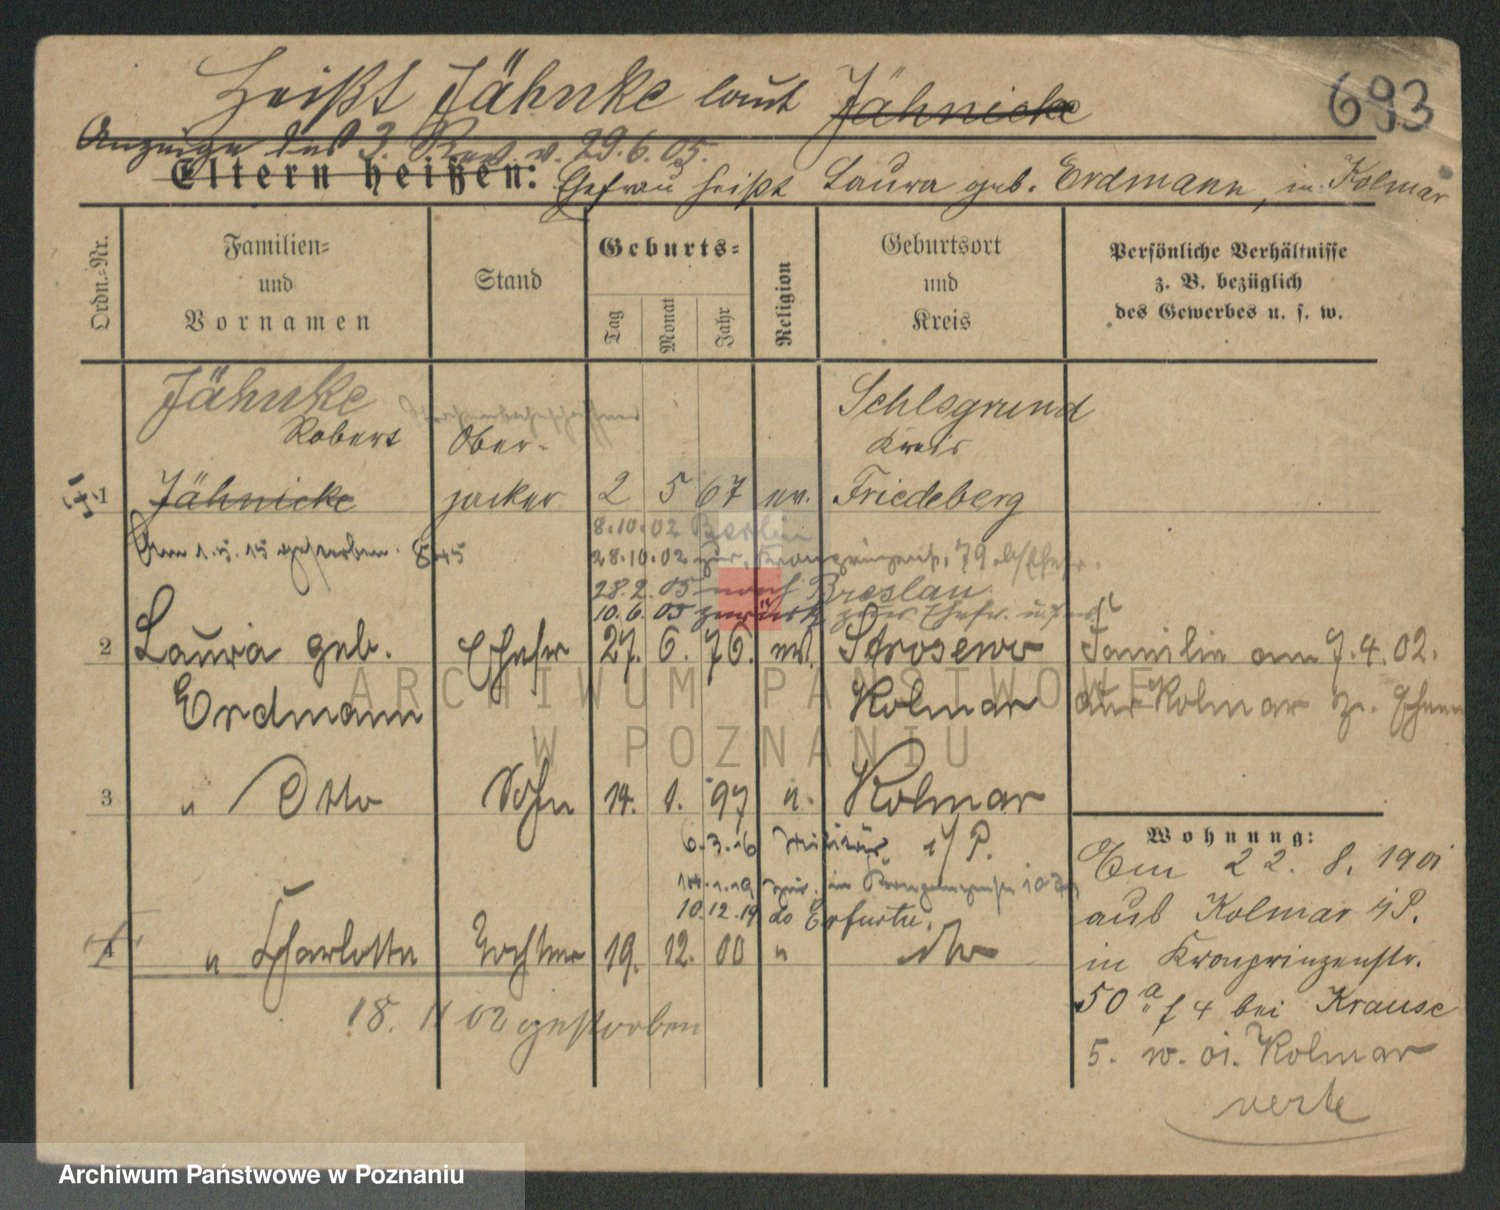 Heißt Jähnke laut Jähnicke
693
Anzeige des 3. Rev. v. 29.6.05.
Eltern heißen: Ehefrau heißt Laura geb. Erdmann, in Kolmar
Ordn.-Nr.
Familien- und Vornamen
Stand
Geburts-
Tag
Monat
Jahr
Religion
Geburtsort und Kreis
Persönliche Verhältnisse z. B. bezüglich des Gewerbes u. s. w.
Jähnke
Robert
Ober-
Schlsgrund
Kreis
1 Jähnicke
2 5 67 ev. Friedeberg
8.10.02 Berlin
Am 1.5.15 gestorben.
28.10.02 zur. 79
28.2.05 nach Breslau
10.6.05 zurück zur Ehefr.
2 Laura geb. Ehefr 27. 6. 76. ev. Strosewo Familie am 7.4.02.
Erdmann Kolmar aus Kolmar z.
3 " Otto Sohn 14. 1. 97 ". Kolmar
6.3.16 Militär i/P.
14.1.19 zur. in
10.12.19 do Erfurt
4 " Charlotte Tochter 19. 12. 00 " dto
18. 11 02 gestorben
Wohnung:
Am 22. 8. 1901
aus Kolmar i/P.
in Kronprinzenstr.
50 a f 4 bei Krause
5. w. oi. Kolmar
verte
ARCHIWUM PAŃSTWOWE
W POZNANIU
Archiwum Państwowe w Poznaniu